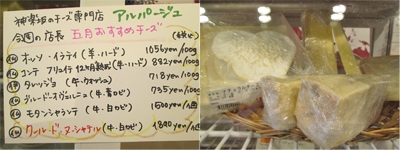 神楽坂のチーズ専門店 アルパージュ
今週の店長 五月おすすめチーズ
(税込)
オッソ・イラティ(羊・ハード) 1056yen/100g
コンテ フリュイテ 12ヶ月熟成(牛・ハード) 882yen/100g
タレッジョ(牛・ウォッシュ) 718yen/100g
ブルー・ド・オーヴェルニュ(牛・青カビ) 735yen/100g
モタンシャランテ(牛・白カビ) 1500yen/
クール・ド・ヌーシャテル(牛・白カビ) 1890yen/